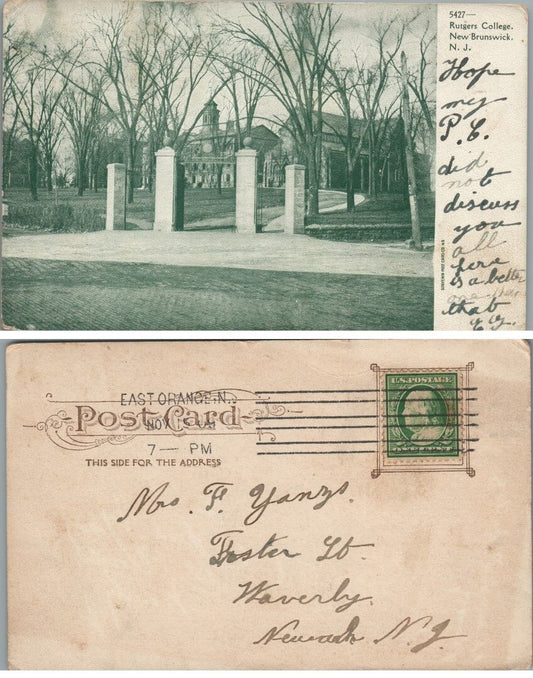 5427—
Rutgers College.
New Brunswick,
N. J.
Hope
my
P. C.
did
not
discuss
you
all
here
is a better
one than
that
SOUVENIR POST CARD CO. N.Y.
EAST ORANGE, N.J.
NOV 15
7 — PM
Post Card
THIS SIDE FOR THE ADDRESS
U.S. POSTAGE
Mrs. F. Yanzs.
Foster St.
Waverly.
Newark N. J.